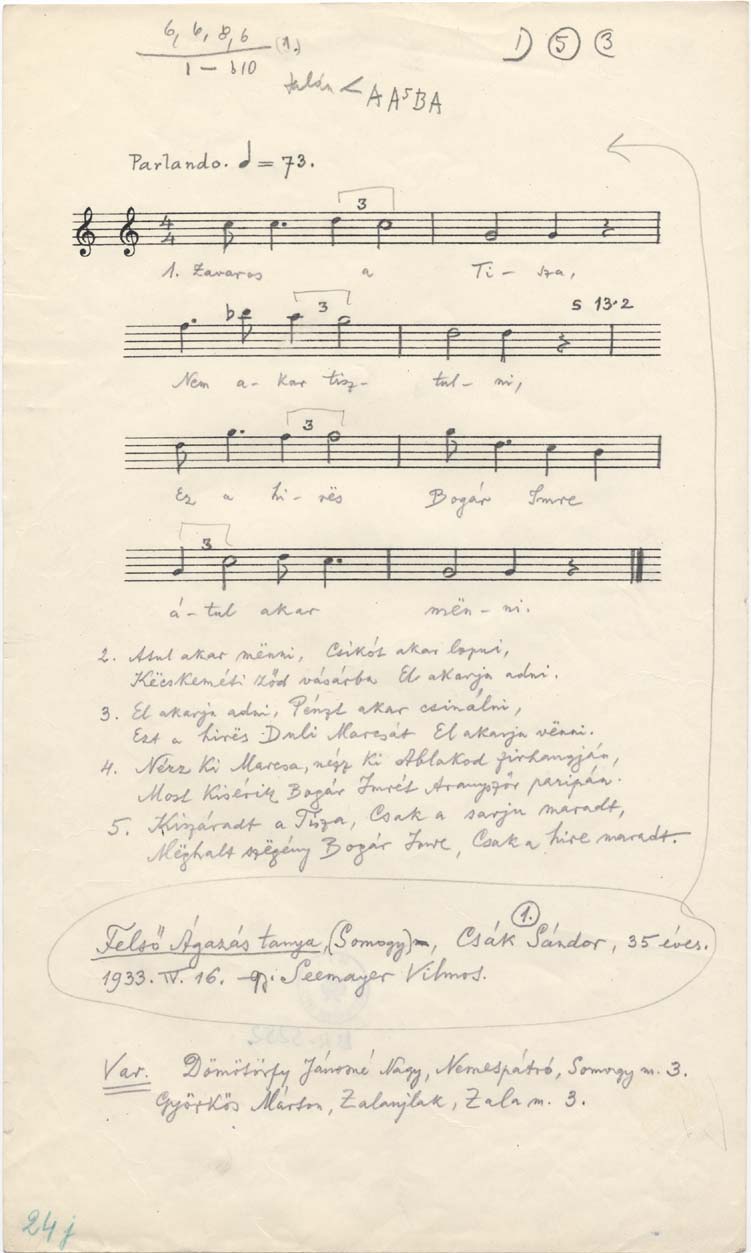 6, 6, 8, 6 (1.)
1 – b10
D 5 3
talán < A A⁵ B A
Parlando. = 73.
3
4
4
1. Zavaros a Ti – sza,
3
5 13·2
Nem a- kar tisz- tul- ni,
3
Ez a hi – rës Bogár Imre
3
á – tul akar mën – ni.
2. Atul akar mënni, Csikót akar lopni,
Këcskeméti ződ vásárba El akarja adni.
3. El akarja adni, Pénzt akar csinálni,
Ezt a hirës Duli Marcsát El akarja vënni.
4. Nézz Ki Marcsa, nézz Ki Ablakod firhangján,
Most Kisérik Bogár Imrét Aranyszőr paripán.
5. Kiszáradt a Tisza, Csak a sarja maradt,
Mëghalt szëgény Bogár Imre, Csak a hire maradt.
1.
Felső Ágazás tanya, (Somogy), Csák Sándor, 35 éves.
1933. IV. 16. Seemayer Vilmos.
Var. Dömötörfy Jánosné Nagy, Nemespátró, Somogy m. 3.
Györkös Márton, Zalaujlak, Zala m. 3.
24 j